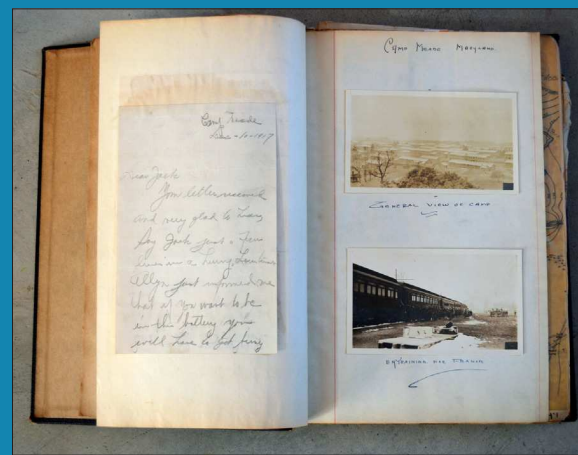 Camp Meade
Dec -10-1917
Dear Jack
Your letter received
and very glad to hear
Say Jack just a few
lines in a hurry
just informed me
that if you want to be
in this battery you
will have to get busy
Camp Meade Maryland
General view of camp
Entraining for France